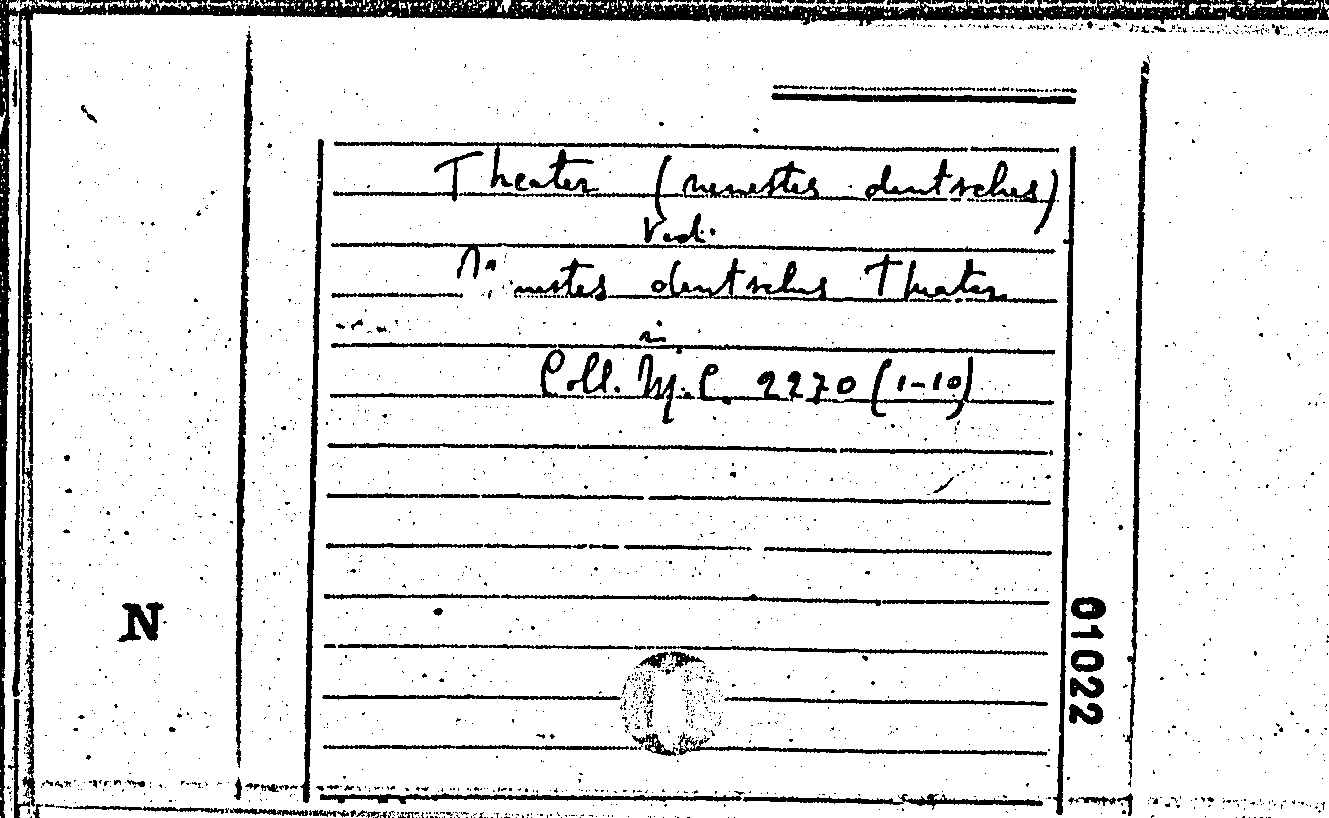 Theater (neuestes deutsches)
Vedi
Neuestes deutsches Theater
in
Coll. M.C. 2270 (1-10)
N
01022